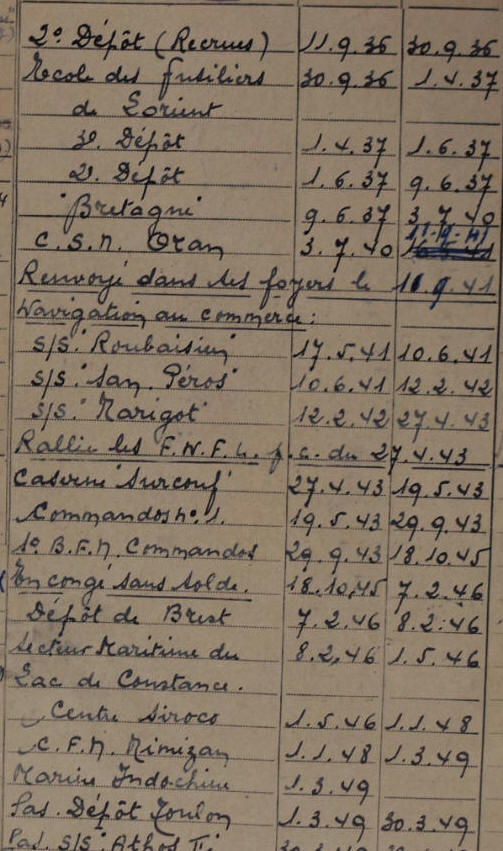 2e Dépôt (Recrues) 11.9.36 30.9.36
Ecole des fusiliers 30.9.36 1.4.37
de Lorient
3e Dépôt 1.4.37 1.6.37
2e Dépôt 1.6.37 9.6.37
"Bretagne" 9.6.37 3.7.40
C.S.M. Oran 3.7.40
Renvoyé dans ses foyers le
Navigation au commerce:
S/S "Roubaisien" 17.5.41 10.6.41
S/S "San Péros" 10.6.41 12.2.42
S/S "Marigot" 12.2.42 27.4.43
Rallie les F.N.F.L. p.c. du 27.4.43
Caserne Surcouf 27.4.43 19.5.43
Commandos n° 1. 19.5.43 29.9.43
1er B.F.M. Commandos 29.9.43 18.10.45
En congé sans solde. 18.10.45 7.2.46
Dépôt de Brest 7.2.46 8.2.46
Secteur Maritime du 8.2.46 1.5.46
Lac de Constance.
Centre Siroco 1.5.46 1.1.48
C.F.M. Mimizan 1.1.48 1.3.49
Marine Indochine 1.3.49
Pas. Dépôt Toulon 1.3.49 30.3.49
Pas. S/S "Athos II"